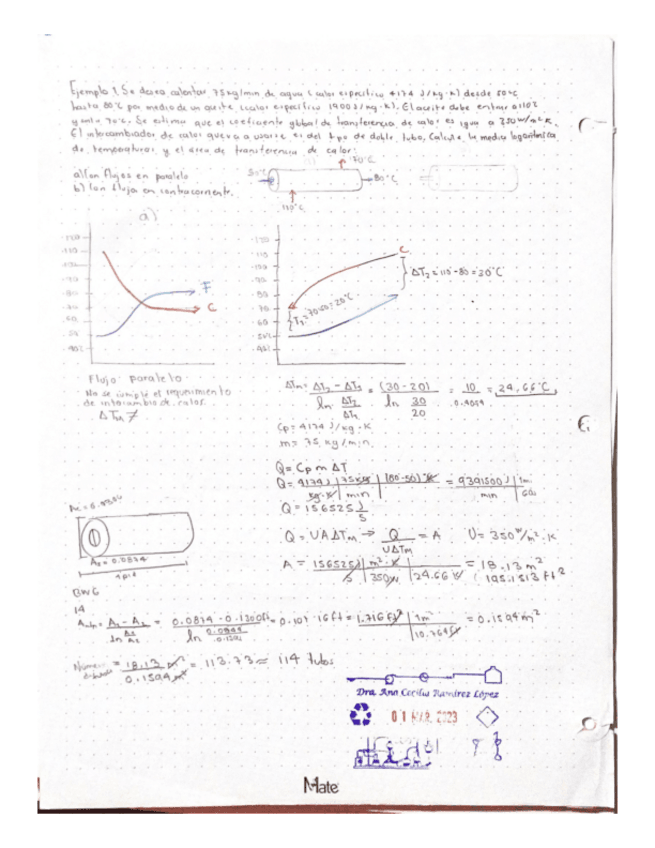 Ejemplo 1. Se desea calentar 75 kg/min de agua (calor especifico 4174 J/kg·K) desde 50°C
hasta 80°C por medio de un aceite (calor especifico 1900 J/kg·K). El aceite debe entrar a 110°C
y salir a 70°C. Se estima que el coeficiente global de transferencia de calor es igual a 350 W/m²·K.
El intercambiador de calor que va a usarse es del tipo de doble tubo, Calcula la media logaritmica
de temperaturas y el area de transferencia de calor:
a) Con flujos en paralelo
b) Con flujo en contracorriente.
70°C
50°C
80°C
110°C
a)
F
C
C
ΔT₂ = 110-80 = 30°C
T₁ = 70-50 = 20°C
Flujo Paralelo
No se cumple el requerimiento
de intercambio de calor.
ΔTM ≠
ΔTm = ΔT₂ - ΔT₁ / ln ΔT₂/ΔT₁ = (30-20) / ln 30/20 = 10 / 0.4054 = 24.66°C
Cp = 4174 J/kg·K
m = 75 kg/min
Q = Cp m ΔT
Q = 4174 J/kg·K | 75 kg/min | (80-50)°K = 9391500 J/min | 1m/60s
Q = 156525 J/s
Q = UAΔTm → Q/UΔTm = A U = 350 W/m²·K
A = 156525 J/s | m²·K/350 W | /24.66 K = 18.13 m²
195.1513 ft²
A₂ = 0.0874
BWG
14
= A₁ - A₂ / ln A₁/A₂ = 0.0874 - 0.1309 / ln = 0.107 · 16 ft = 1.716 ft² | 1m²/10.764 ft² = 0.1594 m²
Número = 18.13 m² / 0.1594 m² = 113.73 ≈ 114 tubos
Dra. Ana Cecilia Ramírez López
01 MAR. 2023
Mate